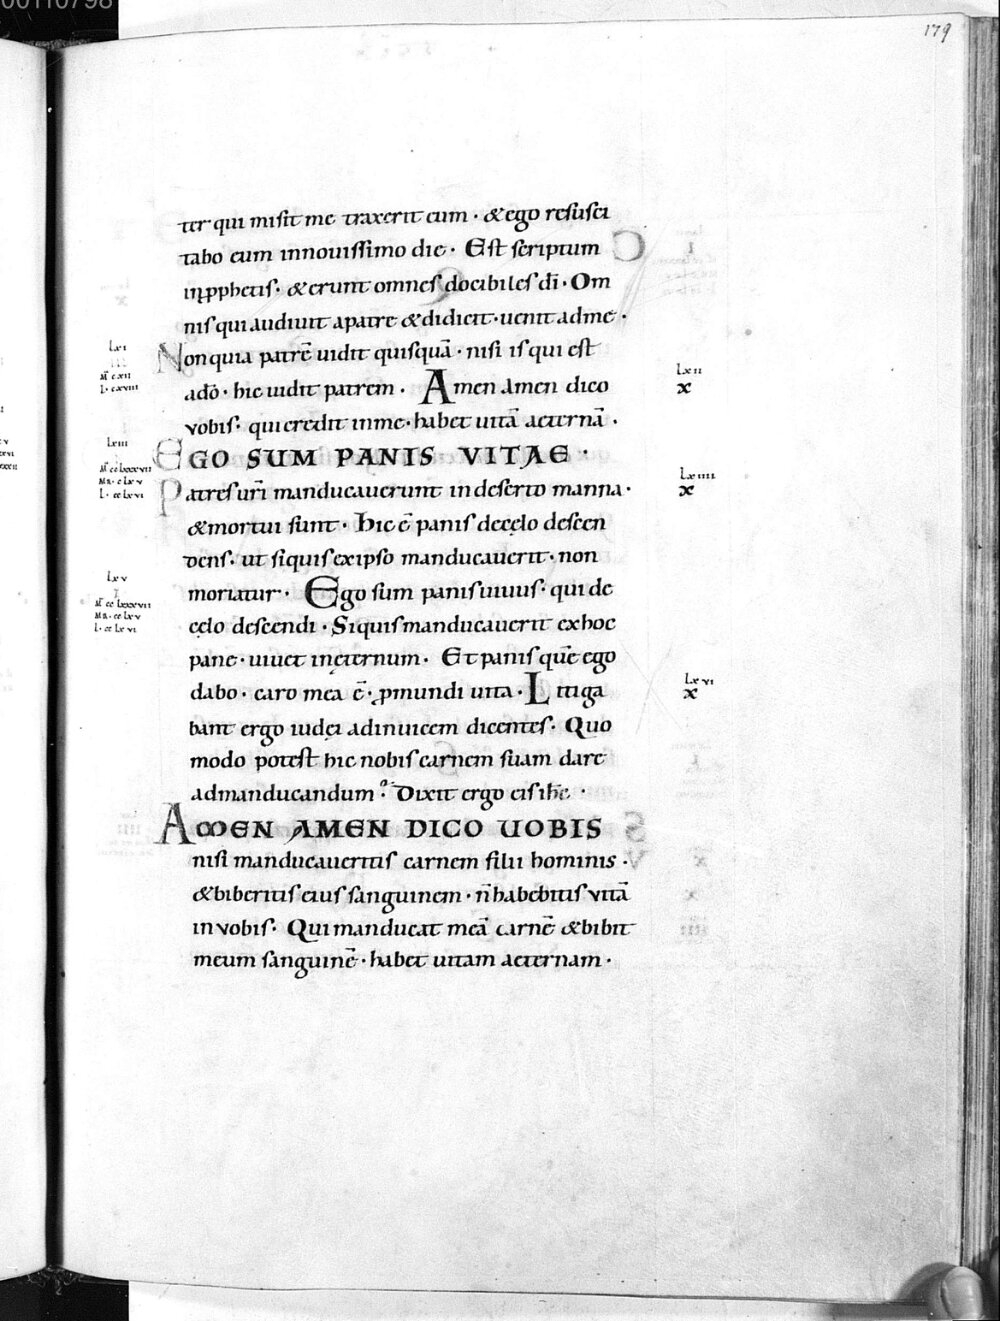 00110798
179
ter qui misit me traxerit eum · & ego resusci
tabo eum innouissimo die · Est scriptum
inpphetis · & erunt omnes docibiles dī · Om
nis qui audiuit apatre & didicit · uenit adme ·
Lxi
Non quia patrē uidit quisquā · nisi is qui est
Lxii
M̄ cxii
L · cxviiii
adō · hic uidit patrem · Amen Amen dico
x
vobis · qui credit inme · habet uitā aeternā ·
Lxiii
EGO SUM PANIS VITAE ·
M̄ cc Lxxxvii
Ma · cc Lxv
L · cc Lxvi
Patres urī manducauerunt indeserto manna ·
Lxiiii
x
& mortui sunt · Hic ē panis decęlo descen
dens · ut siquis exipso manducauerit · non
Lxv
I
moriatur · Ego sum panis uiuus · qui de
M̄ cc Lxxxvii
Ma · cc Lxv
L · cc Lxvi
cęlo descendi · Siquis manducauerit exhoc
pane · uiuet inęternum · Et panis quē ego
Lxvi
dabo · caro mea ē · ꝓmundi uita · Litiga
x
bant ergo iudęi adinuicem dicentes · Quo
modo potest hic nobis carnem suam dare
admanducandum · Dixit ergo eis ihc ·
AMEN AMEN DICO UOBIS
nisi manducaueritis carnem filii hominis ·
& biberitis eius sanguinem · n̄ habebitis uitā
in vobis · Qui manducat meā carnē & bibit
meum sanguinē · habet uitam aeternam ·